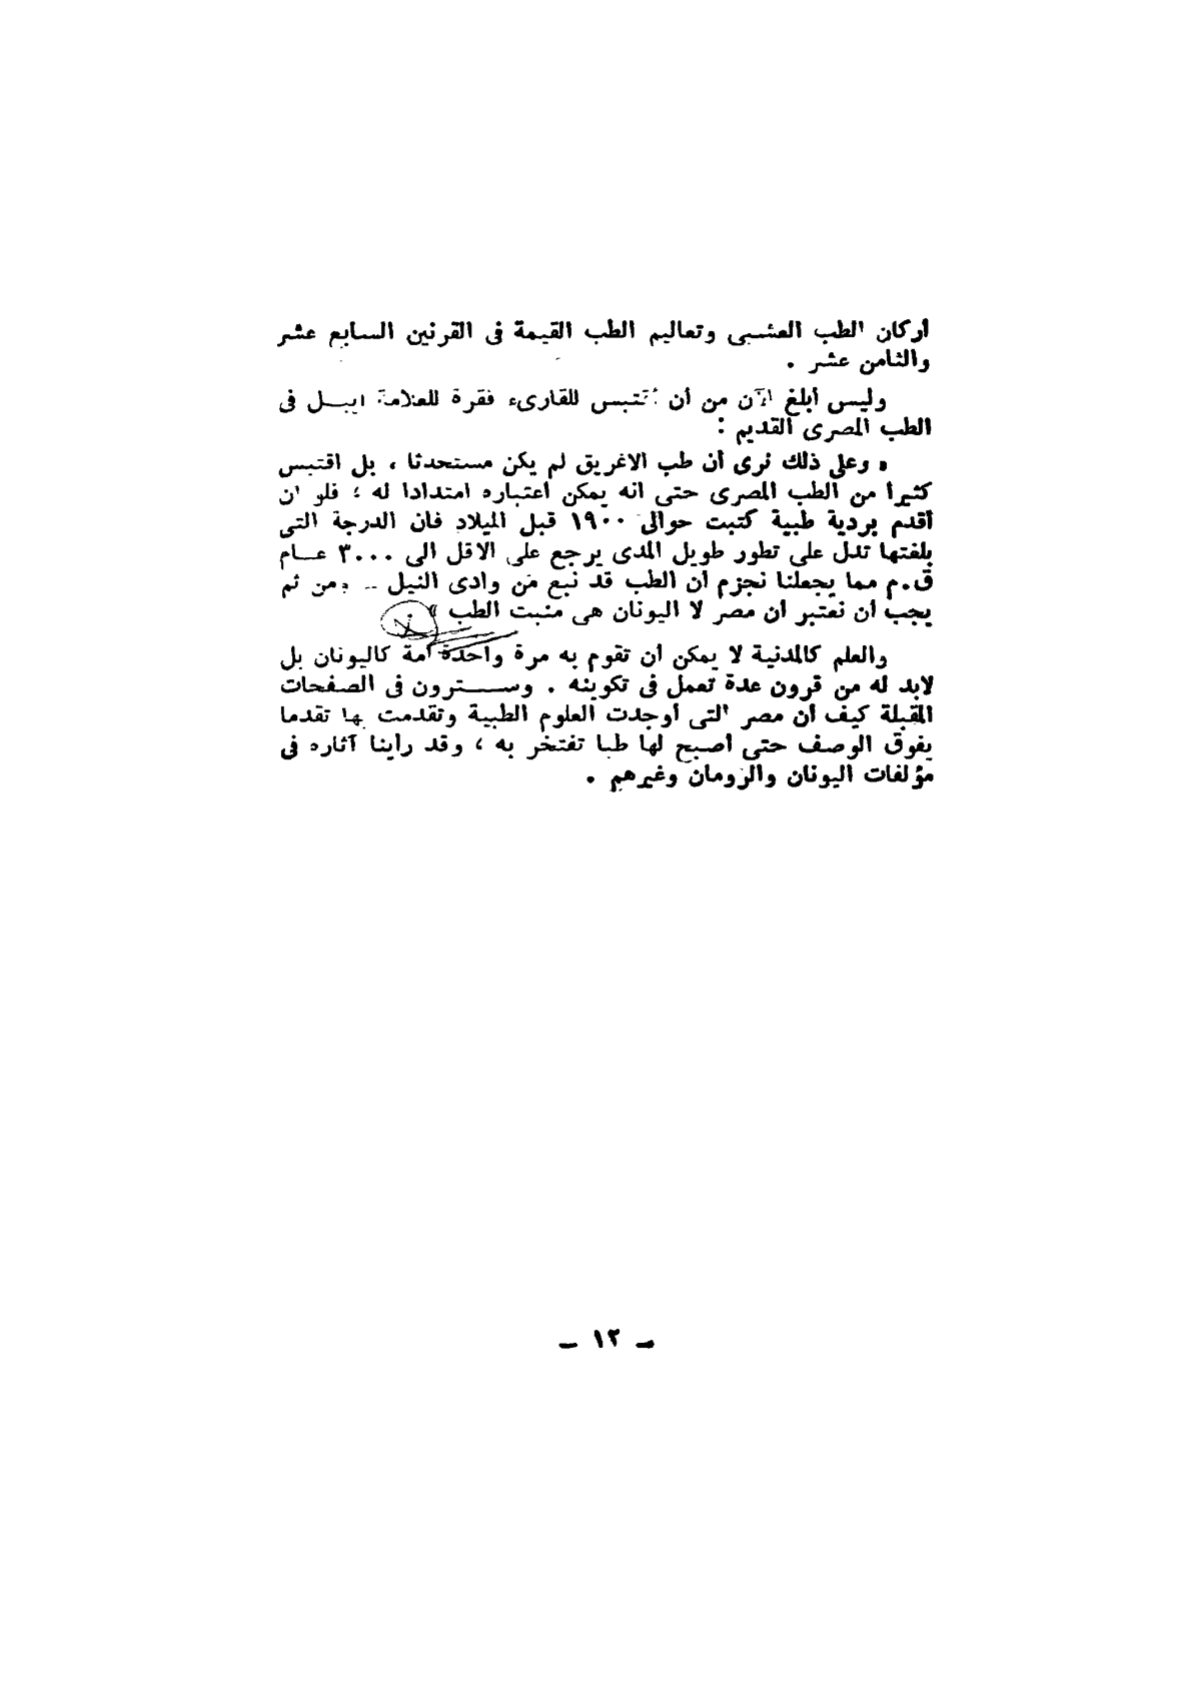 أركان الطب العشبى وتعاليم الطب القيمة فى القرنين السابع عشر
والثامن عشر .
وليس أبلغ الآن من أن أقتبس للقارىء فقرة للعلامة ايبـــل فى
الطب المصرى القديم :
« وعلى ذلك نرى أن طب الاغريق لم يكن مستحدثا ، بل اقتبس
كثيرا من الطب المصرى حتى انه يمكن اعتباره امتدادا له ؛ فلو ان
أقدم بردية طبية كتبت حوالى ١٩٠٠ قبل الميلاد فان الدرجة التى
بلغتها تدل على تطور طويل المدى يرجع على الاقل الى ٣٠٠٠ عــام
ق.م مما يجعلنا نجزم أن الطب قد نبع من وادى النيل .. ومن ثم
يجب أن نعتبر أن مصر لا اليونان هى منبت الطب » .
والعلم كالمدنية لا يمكن أن تقوم به مرة واحدة أمة كاليونان بل
لابد له من قرون عدة تعمل فى تكوينه . وســــترون فى الصفحات
المقبلة كيف أن مصر التى أوجدت العلوم الطبية وتقدمت بها تقدما
يفوق الوصف حتى أصبح لها طبا تفتخر به ، وقد رأينا آثاره فى
مؤلفات اليونان والرومان وغيرهم .
ـ ١٢ ـ